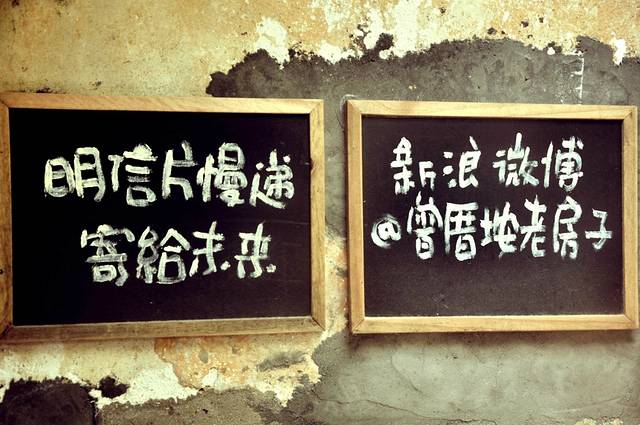 明信片慢递
寄给未来
新浪微博
@曾厝垵老房子